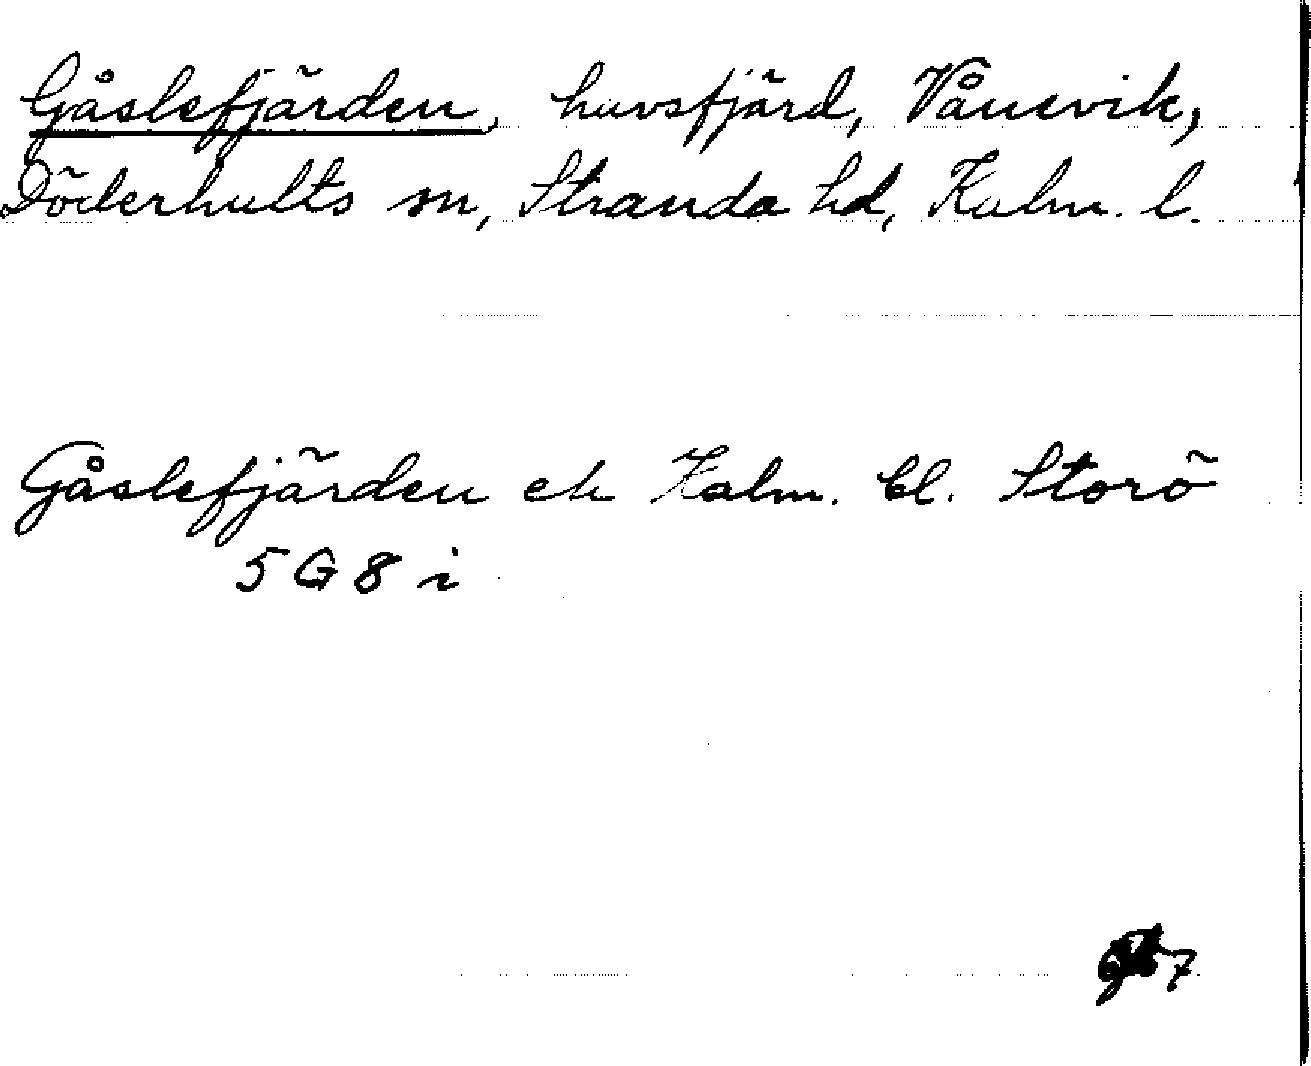 Gåslefjärden, havsfjärd, Vånevik,
Döderhults sn, Stranda hd, Kalm. l.
Gåslefjärden ek Kalm. bl. Storö
5 G 8 i
7